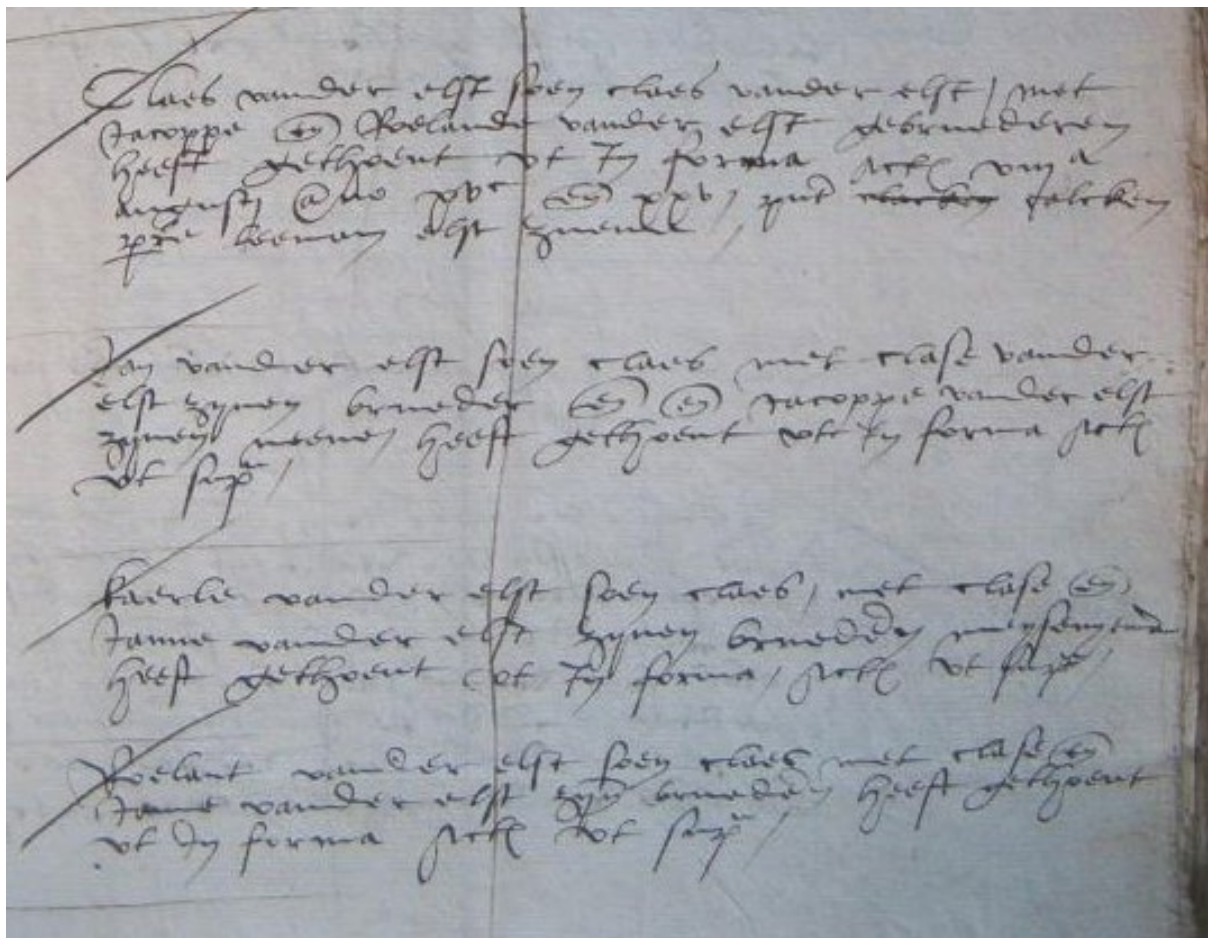 Claes vander elst soen claes vander elst / met
Jacoppe en Roelande vander elst gebruederen
heeft gethoent vt In forma actu viii a
augusti ao xvc en xxv / pnt falcken
elst
Jan vander elst soen claes met clase vander
elst zynen brueder en en Jacoppe vander elst
zynen neeve heeft gethoent vt In forma actu
vt sup /
kaerle vander elst soen claes / met clase en
Janne vander elst zynen brueders
heeft gethoent vt In forma / actu vt supr /
Roelant vander elst soen claes met clase en
Janne vander elst zyn brueders heeft gethoent
vt In forma actu vt sup /